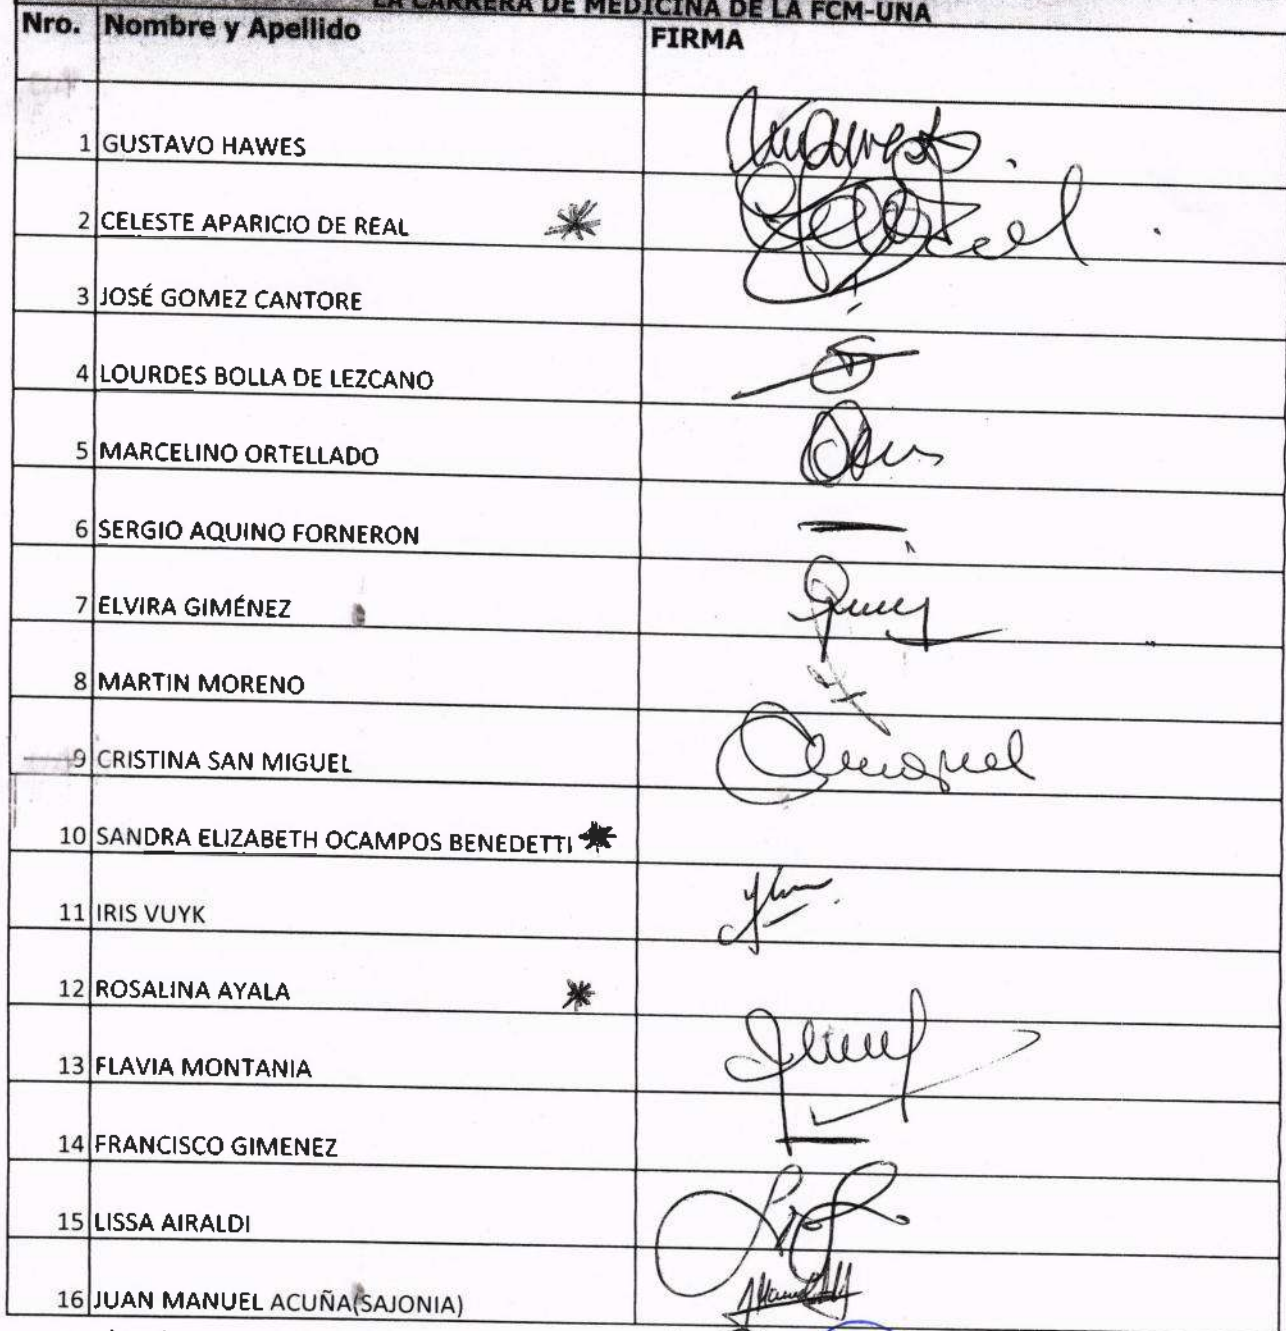 LA CARRERA DE MEDICINA DE LA FCM-UNA
Nro. Nombre y Apellido FIRMA
1 GUSTAVO HAWES
2 CELESTE APARICIO DE REAL
3 JOSÉ GOMEZ CANTORE
4 LOURDES BOLLA DE LEZCANO
5 MARCELINO ORTELLADO
6 SERGIO AQUINO FORNERON
7 ELVIRA GIMÉNEZ
8 MARTIN MORENO
9 CRISTINA SAN MIGUEL
10 SANDRA ELIZABETH OCAMPOS BENEDETTI
11 IRIS VUYK
12 ROSALINA AYALA
13 FLAVIA MONTANIA
14 FRANCISCO GIMENEZ
15 LISSA AIRALDI
16 JUAN MANUEL ACUÑA(SAJONIA)